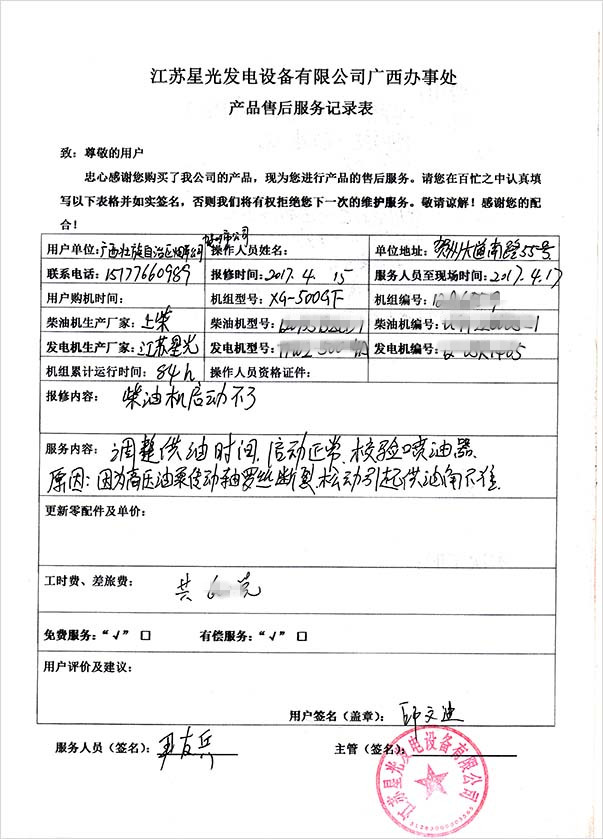 江苏星光发电设备有限公司广西办事处
产品售后服务记录表
致：尊敬的用户
忠心感谢您购买了我公司的产品，现为您进行产品的售后服务。请您在百忙之中认真填
写以下表格并如实签名，否则我们将有权拒绝您下一次的维护服务。敬请谅解！感谢您的配
合！
用户单位：广西壮族自治区 公司 操作人员姓名： 单位地址：贺州大道南路55号
联系电话：15177660989 报修时间：2017.4.15 服务人员至现场时间：2017.4.17
用户购机时间： 机组型号：XG-500GF 机组编号：
柴油机生产厂家：上柴 柴油机型号： 柴油机编号：
发电机生产厂家：江苏星光 发电机型号： 发电机编号：
机组累计运行时间：84h 操作人员资格证件：
报修内容：柴油机启动不了
服务内容：调整供油时间，启动正常、校验喷油器
原因：因为高压油泵传动轴罗丝断裂，松动引起供油角不准
更新零配件及单价：
工时费、差旅费：共 元
免费服务：“√” □ 有偿服务：“√” □
用户评价及建议：
用户签名（盖章）： 邱文迪
服务人员（签名）： 友兵 主管（签名）：
江苏星光发电设备有限公司